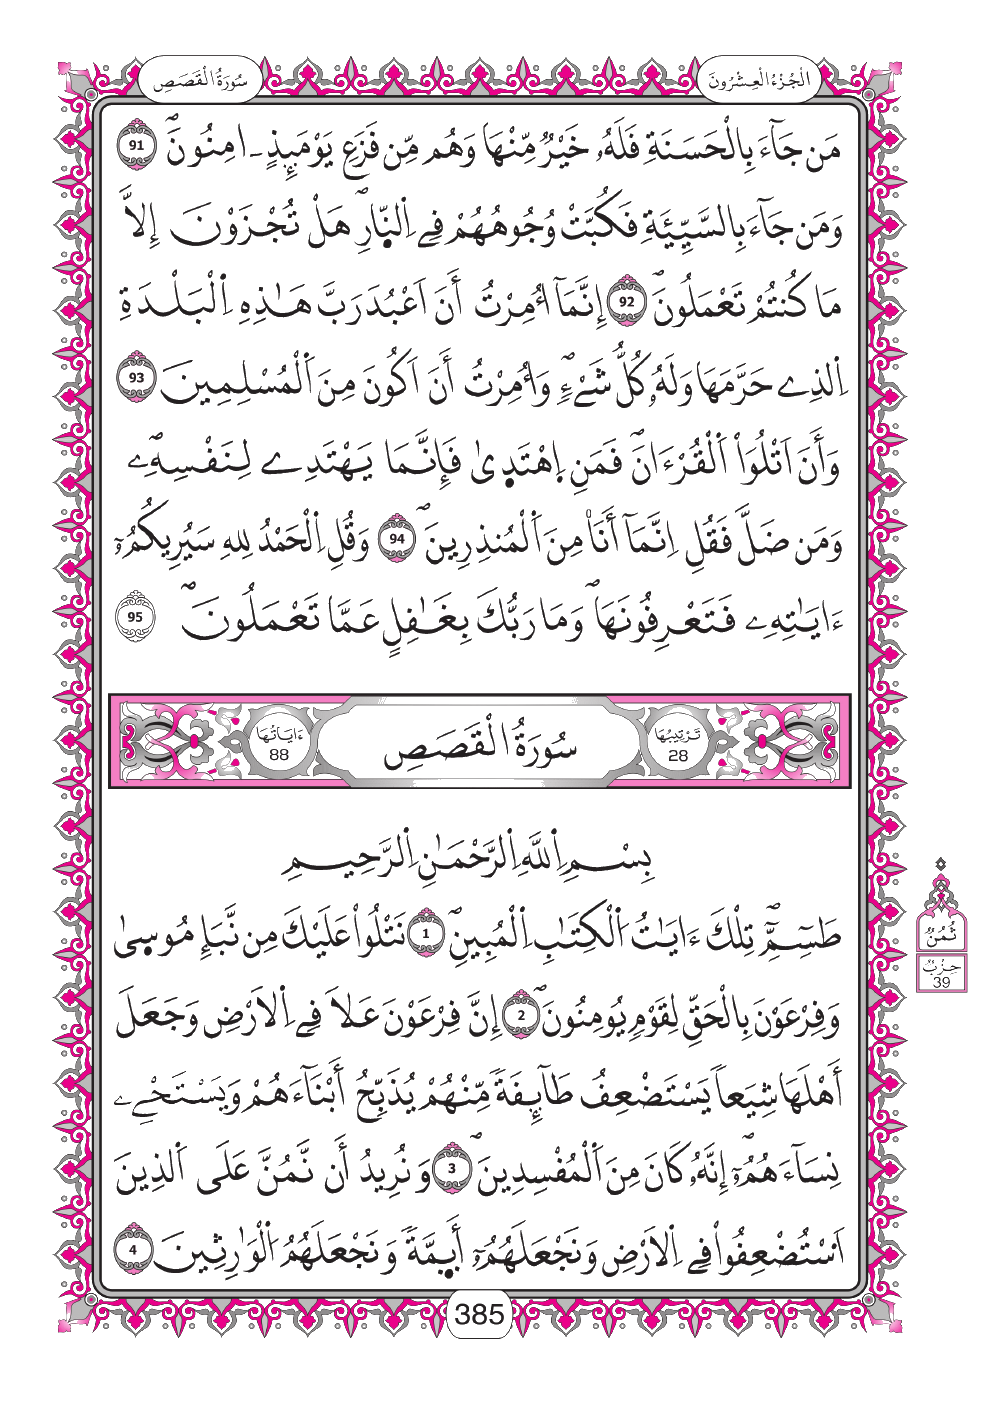 الْجُزْءُ الْعِشْرُونَ
سُورَةُ الْقَصَصِ
مَن جَآءَ بِالْحَسَنَةِ فَلَهُۥ خَيْرٌ مِّنْهَا وَهُم مِّن فَزَعِ يَوْمَئِذٍ ـ امِنُونَۖ 91
وَمَن جَآءَ بِالسَّيِّئَةِ فَكُبَّتْ وُجُوهُهُمْ فِے اِ۬لنّ۪ارِۖ هَلْ تُجْزَوْنَ إِلاَّ
مَا كُنتُمْ تَعْمَلُونَۖ 92 إِنَّمَآ أُمِرْتُ أَنَ اَعْبُدَ رَبَّ هَٰذِهِ اِ۬لْبَلْدَةِ
اِ۬لذِے حَرَّمَهَا وَلَهُۥ كُلُّ شَےْءٖۖ وَأُمِرْتُ أَنَ اَكُونَ مِنَ اَ۬لْمُسْلِمِينَ 93
وَأَنَ اَتْلُوَاْ اَ۬لْقُرْءَانَۖ فَمَنِ اِ۪هْتَد۪ىٰ فَإِنَّمَا يَهْتَدِے لِنَفْسِهِۦۖ
وَمَن ضَلَّ فَقُلِ اِنَّمَآ أَنَا۠ مِنَ اَ۬لْمُنذِرِينَۖ 94 وَقُلِ اِ۬لْحَمْدُ لِلهِ سَيُرِيكُمُۥٓ
ءَايَٰتِهِۦ فَتَعْرِفُونَهَاۖ وَمَا رَبُّكَ بِغَٰفِلٍ عَمَّا تَعْمَلُونَۖ 95
تَرْتِيبُهَا 28
سُورَةُ الْقَصَصِ
ءَايَاتُهَا 88
بِسْمِ اِ۬للَّهِ اِ۬لرَّحْمَٰنِ اِ۬لرَّحِيمِ
طَسِٓمِّٓۖ تِلْكَ ءَايَٰتُ اُ۬لْكِتَٰبِ اِ۬لْمُبِينِۖ 1 نَتْلُواْ عَلَيْكَ مِن نَّبَإِ مُوس۪ىٰ
وَفِرْعَوْنَ بِالْحَقِّ لِقَوْمٖ يُومِنُونَۖ 2 إِنَّ فِرْعَوْنَ عَلَا فِے اِ۬لَارْضِ وَجَعَلَ
أَهْلَهَا شِيَعاٗ يَسْتَضْعِفُ طَآئِفَةٗ مِّنْهُمْ يُذَبِّحُ أَبْنَآءَهُمْ وَيَسْتَحْيِۦ
نِسَآءَهُمُۥٓۖ إِنَّهُۥ كَانَ مِنَ اَ۬لْمُفْسِدِينَۖ 3 وَنُرِيدُ أَن نَّمُنَّ عَلَى اَ۬لذِينَ
اَ۟سْتُضْعِفُواْ فِے اِ۬لَارْضِ وَنَجْعَلَهُمُۥٓ أَئِمَّةٗ وَنَجْعَلَهُمُ اُ۬لْوَٰرِثِينَ 4
ثُمُنُ
حِزْبُ
39
385